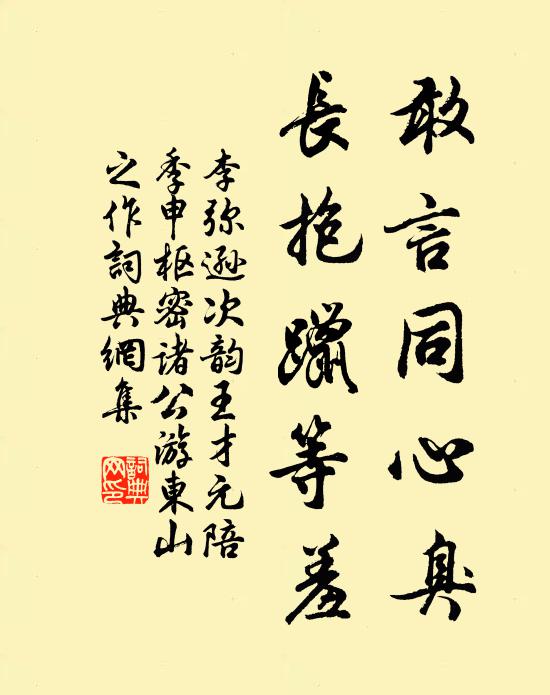 敢言同心臭
長抱躐等羞
李弥遜次韵王才元陪
季申枢密諸公游東山
之作詞典網集
詞典网印